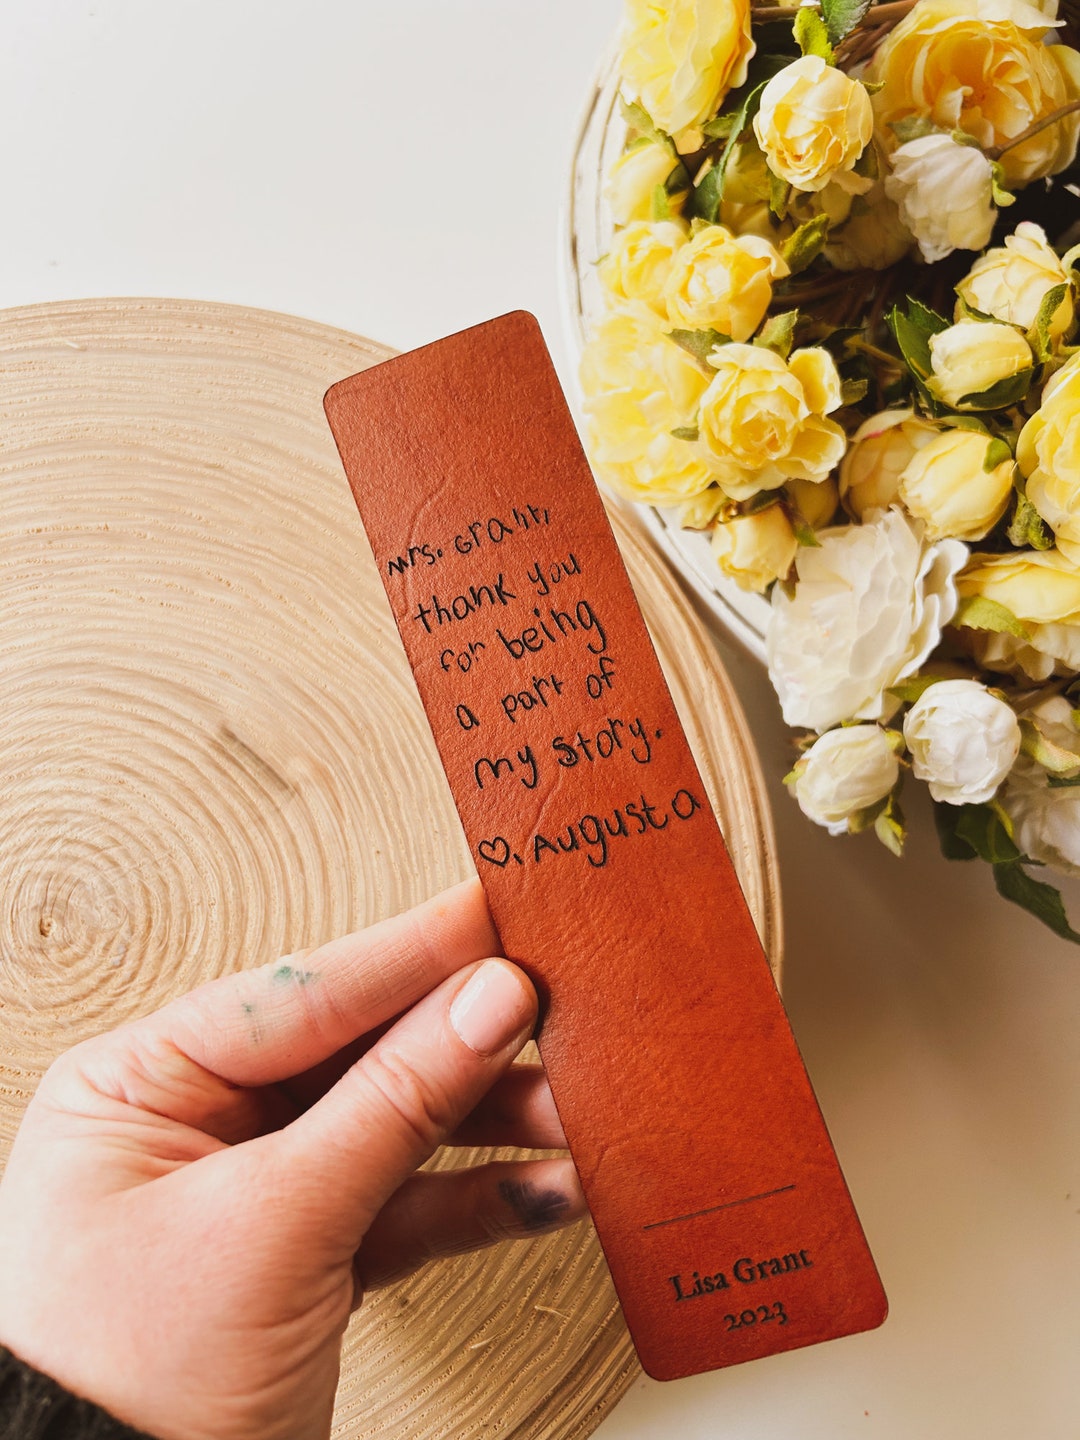 Mrs. Grant,
thank you
for being
a part of
my story.
♡, Augusta
Lisa Grant
2023